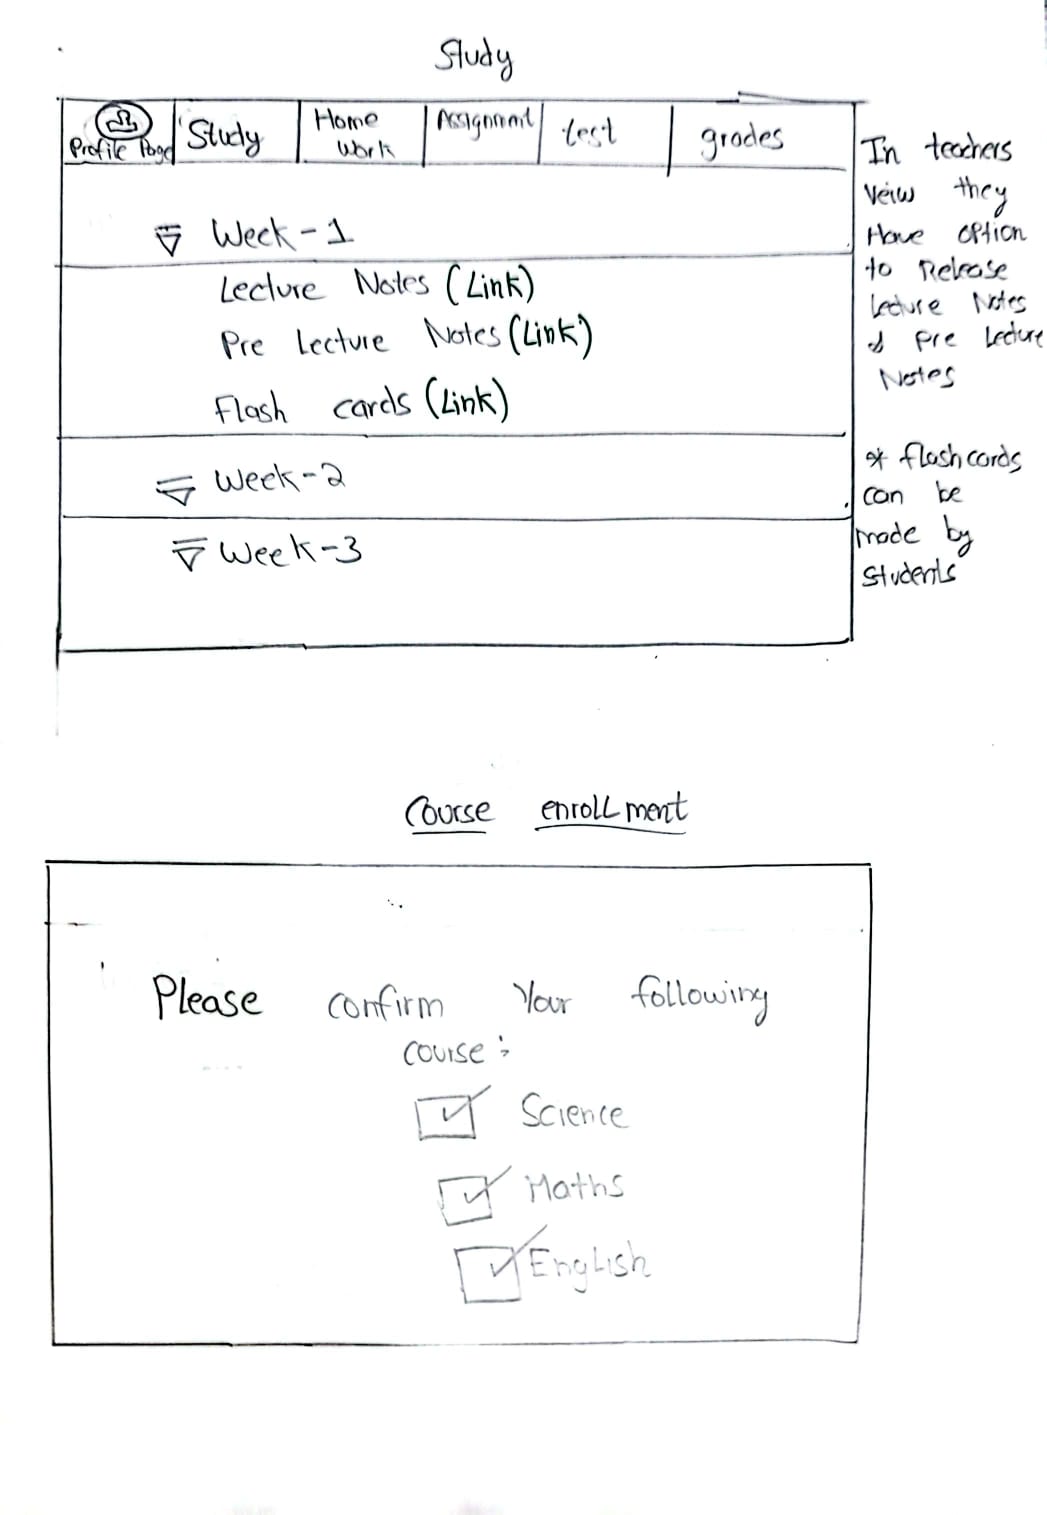 Study
Profile Page
Study
Home
Work
Assignment
test
grades
Week-1
Lecture Notes (Link)
Pre Lecture Notes (Link)
Flash cards (Link)
Week-2
Week-3
In teachers
Veiw they
Have option
to Release
Lecture Notes
& Pre Lecture
Notes
* flash cards
can be
made by
students
Course enrollment
Please confirm Your following
course:
Science
Maths
English